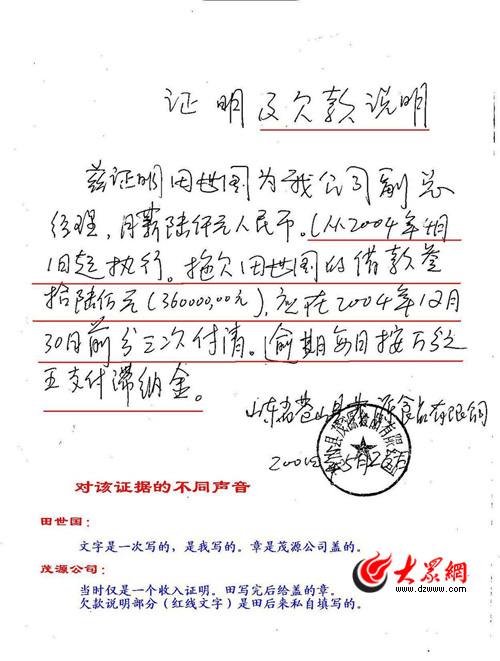 证明及欠款说明
兹证明田世国为我公司副总
经理,月薪陆仟元人民币。(从2004年4月
1日起执行。拖欠田世国的借款叁
拾陆佰元(360000,00元),应在2004年12月
30日前分三次付清。逾期每日按万分之
五支付滞纳金。
山东省苍山县茂源食品有限公司
2004 5月2
对该证据的不同声音
田世国:
文字是一次写的,是我写的。章是茂源公司盖的。
茂源公司:
当时仅是一个收入证明。田写完后给盖的章。
欠款说明部分(红线文字)是田后来私自填写的。
大众網
www.dzwww.com